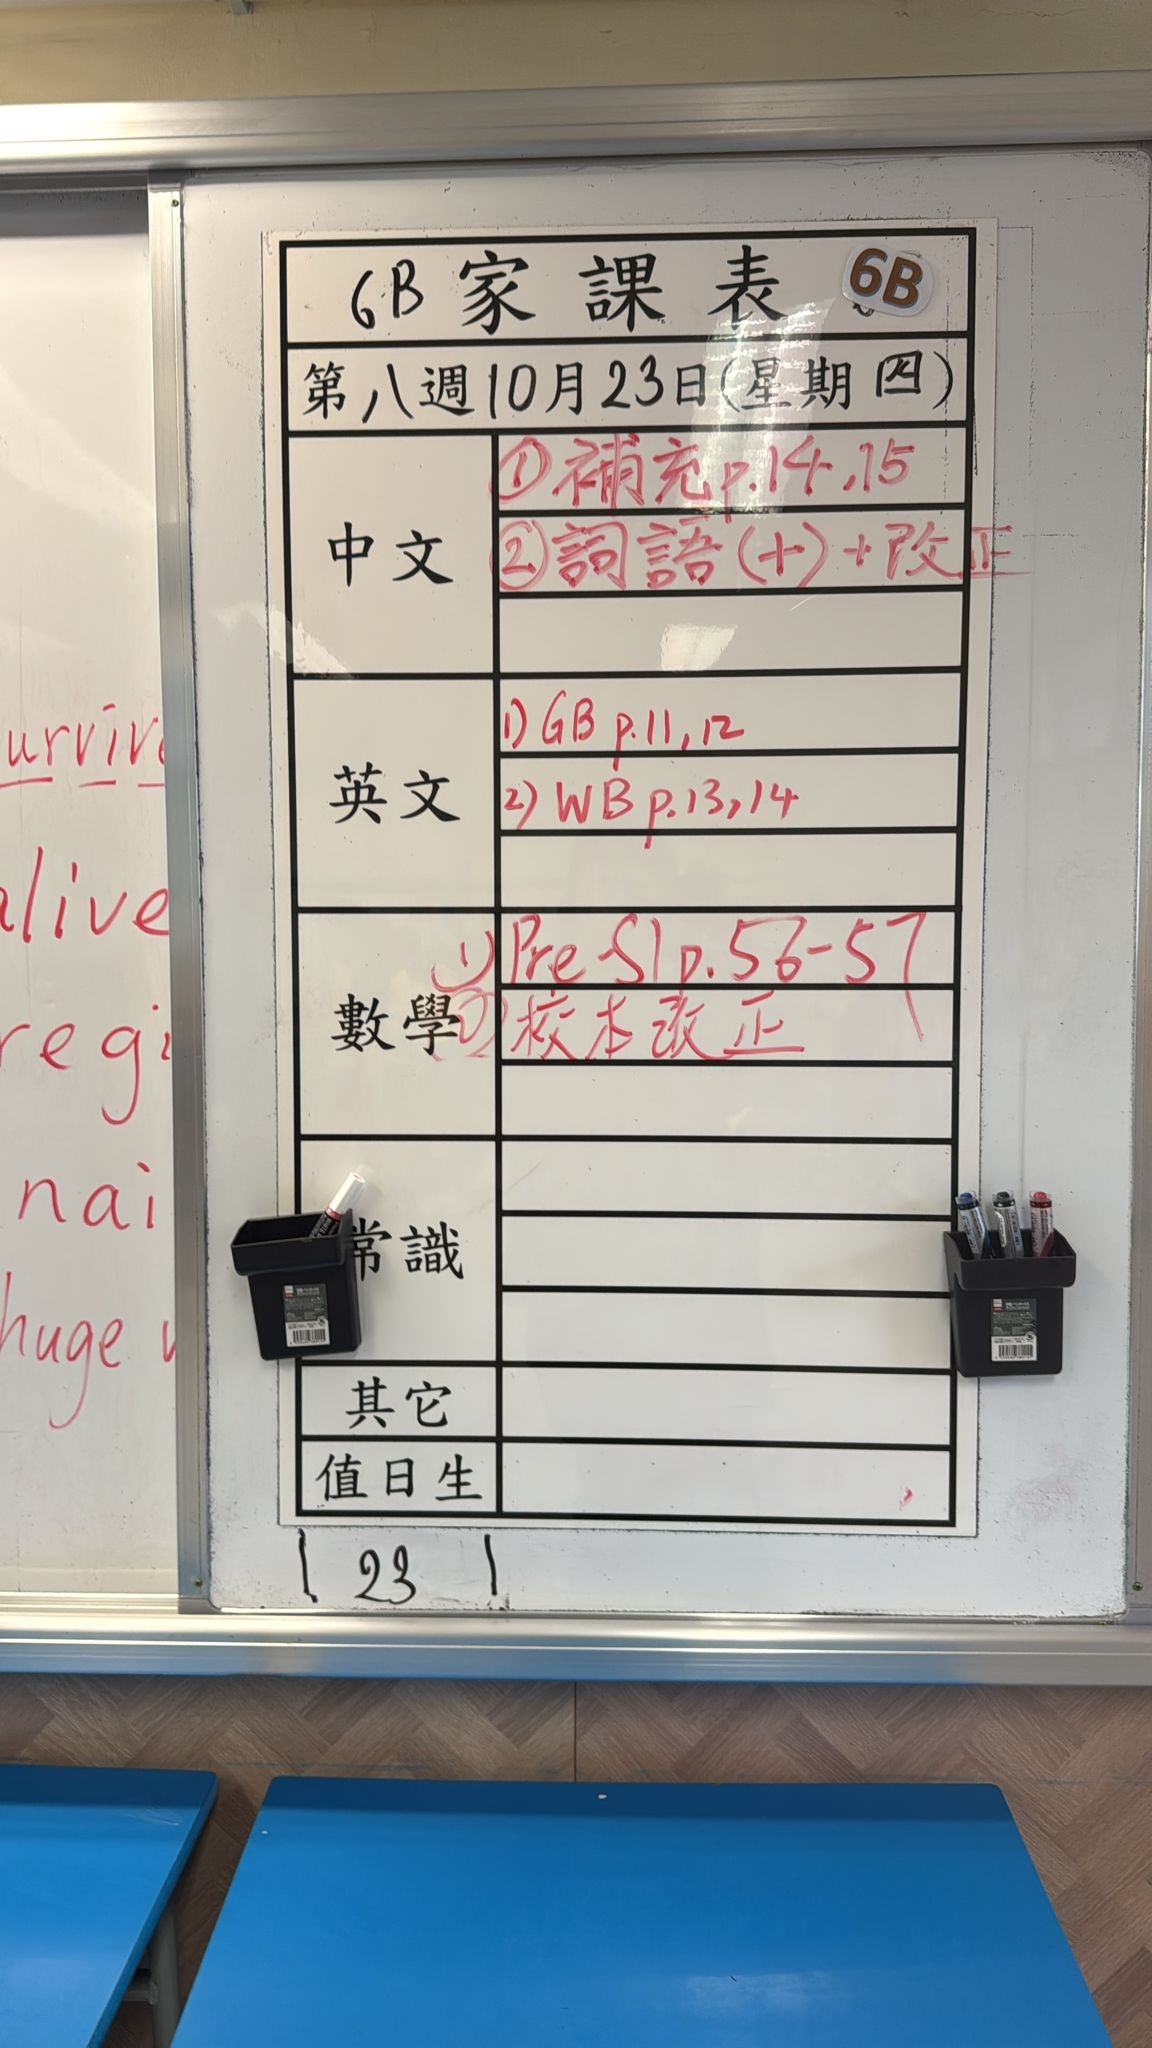 6B 家課表 6B
第八週10月23日(星期四)
中文
①補充p.14,15
②詞語(十)+改正
英文
1) GB p.11,12
2) WB p.13,14
數學
1) Pre-S1 p.56-57
2) 校本改正
常識
其它
值日生
23
alive
huge